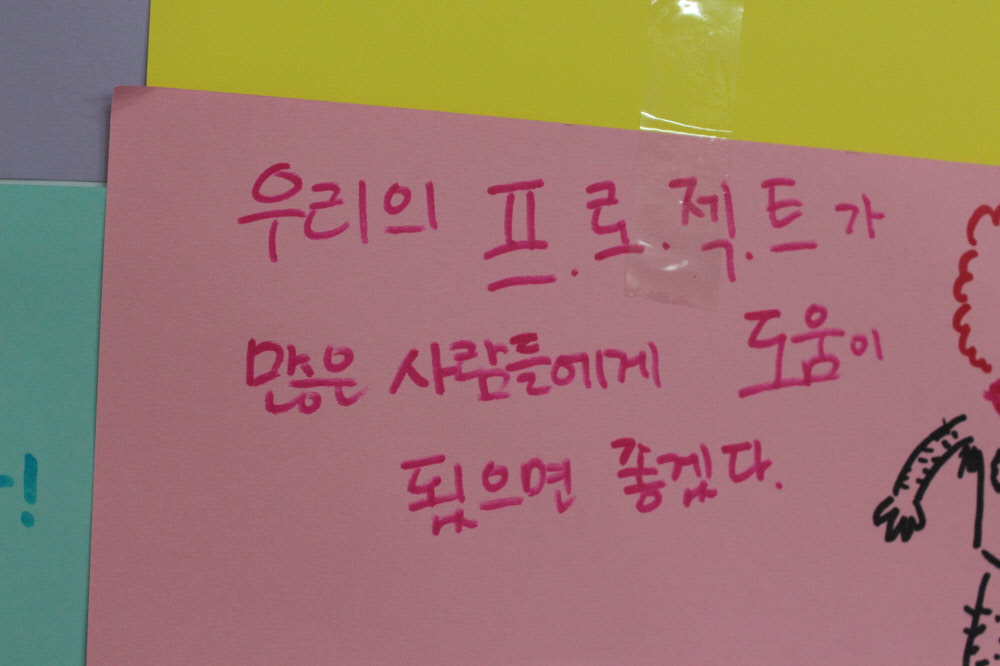 우리의 프.로.젝.트가
많은 사람들에게 도움이
됬으면 좋겠다.
!